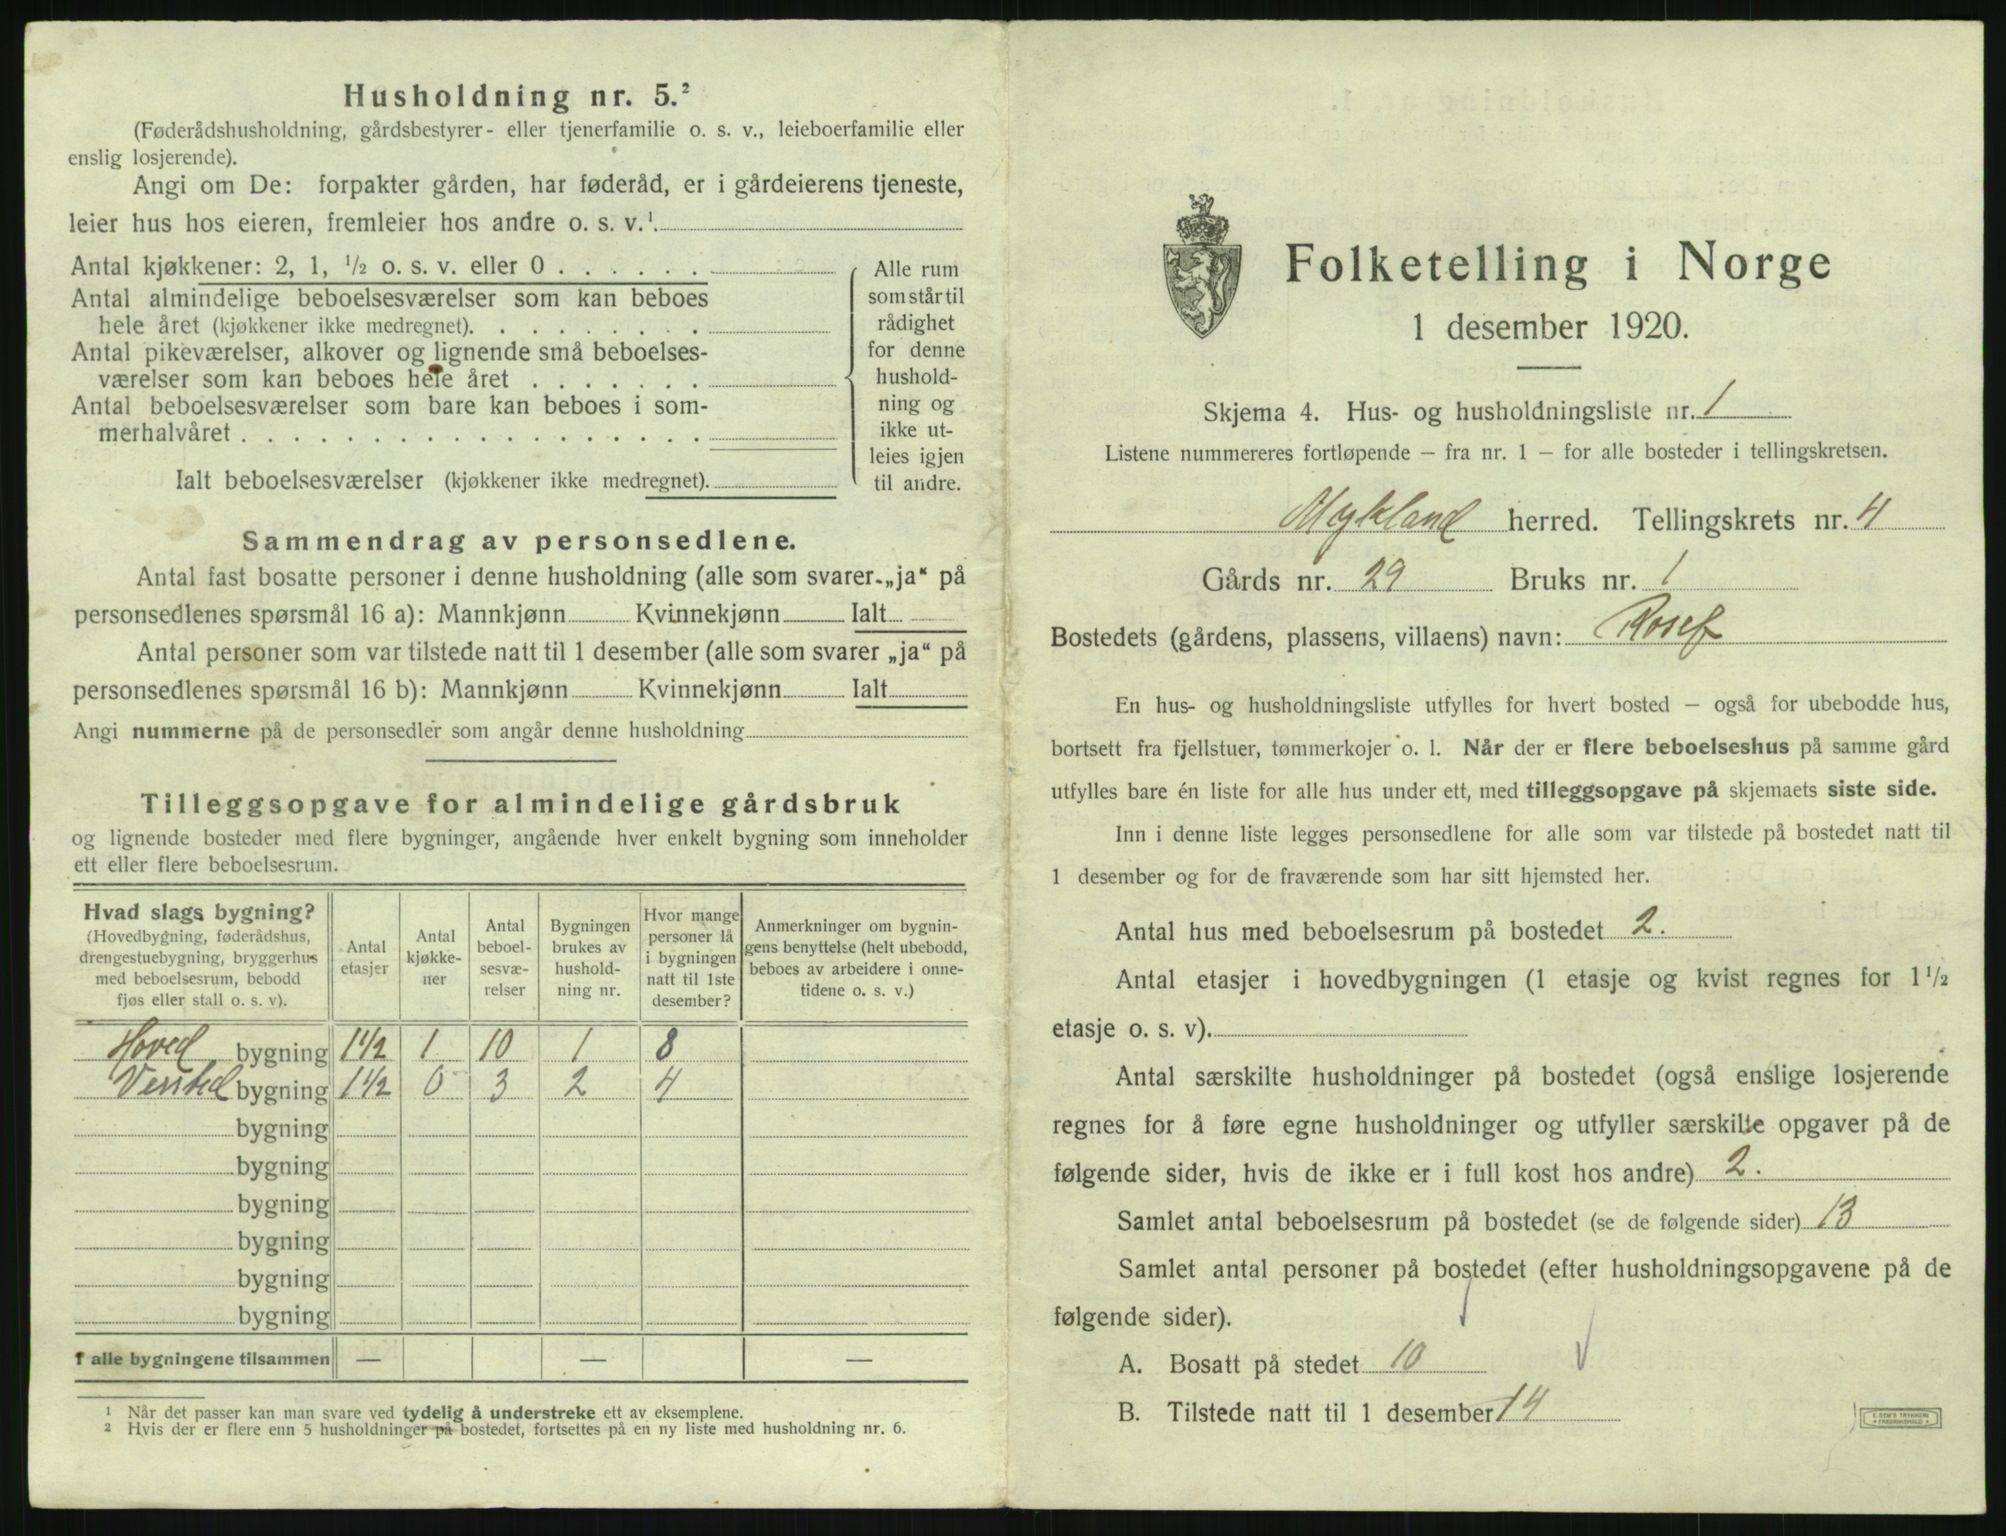 Husholdning nr. 5.²
(Føderådshusholdning, gårdsbestyrer- eller tjenerfamilie o. s. v., leieboerfamilie eller
enslig losjerende).
Angi om De: forpakter gården, har føderåd, er i gårdeierens tjeneste,
leier hus hos eieren, fremleier hos andre o. s. v.¹
Antal kjøkkener: 2, 1, ½ o. s. v. eller 0 . . . . . .
Antal almindelige beboelsesværelser som kan beboes
hele året (kjøkkener ikke medregnet). . . . . . . . .
Antal pikeværelser, alkover og lignende små beboelses-
værelser som kan beboes hele året . . . . . . .
Antal beboelsesværelser som bare kan beboes i som-
merhalvåret . . . . . . . . . . . . . . . . . .
Ialt beboelsesværelser (kjøkkener ikke medregnet).
Alle rum
som står til
rådighet
for denne
hushold-
ning og
ikke ut-
leies igjen
til andre.
Sammendrag av personsedlene.
Antal fast bosatte personer i denne husholdning (alle som svarer „ja“ på
personsedlenes spørsmål 16 a): Mannkjønn Kvinnekjønn Ialt
Antal personer som var tilstede natt til 1 desember (alle som svarer „ja“ på
personsedlenes spørsmål 16 b): Mannkjønn Kvinnekjønn Ialt
Angi nummerne på de personsedler som angår denne husholdning
Tilleggsopgave for almindelige gårdsbruk
og lignende bosteder med flere bygninger, angående hver enkelt bygning som inneholder
ett eller flere beboelsesrum.
Hvad slags bygning?
(Hovedbygning, føderådshus,
drengestuebygning, bryggerhus
med beboelsesrum, bebodd
fjøs eller stall o. s. v).
Antal
etasjer
Antal
kjøkke-
ner
Antal
beboel-
sesvæ-
relser
Bygningen
brukes av
hushold-
ning nr.
Hvor mange
personer lå
i bygningen
natt til 1ste
desember?
Anmerkninger om bygnin-
gens benyttelse (helt ubebodd,
beboes av arbeidere i onne-
tidene o. s. v.)
Hoved bygning 1½ 1 10 1 8
bygning 1½ 0 3 2 4
bygning
bygning
bygning
bygning
bygning
bygning
I alle bygningene tilsammen — — —
¹ Når det passer kan man svare ved tydelig å understreke ett av eksemplene.
² Hvis der er flere enn 5 husholdninger på bostedet, fortsettes på en ny liste med husholdning nr. 6.
Folketelling i Norge
1 desember 1920.
Skjema 4. Hus- og husholdningsliste nr. 1
Listene nummereres fortløpende – fra nr. 1 – for alle bosteder i tellingskretsen.
Mykland herred. Tellingskrets nr. 4
Gårds nr. 29 Bruks nr. 1
Bostedets (gårdens, plassens, villaens) navn: Rosef
En hus- og husholdningsliste utfylles for hvert bosted – også for ubebodde hus,
bortsett fra fjellstuer, tømmerkojer o. l. Når der er flere beboelseshus på samme gård
utfylles bare én liste for alle hus under ett, med tilleggsopgave på skjemaets siste side.
Inn i denne liste legges personsedlene for alle som var tilstede på bostedet natt til
1 desember og for de fraværende som har sitt hjemsted her.
Antal hus med beboelsesrum på bostedet 2.
Antal etasjer i hovedbygningen (1 etasje og kvist regnes for 1½
etasje o. s. v).
Antal særskilte husholdninger på bostedet (også enslige losjerende
regnes for å føre egne husholdninger og utfyller særskilte opgaver på de
følgende sider, hvis de ikke er i full kost hos andre) 2.
Samlet antal beboelsesrum på bostedet (se de følgende sider) 13
Samlet antal personer på bostedet (efter husholdningsopgavene på de
følgende sider).
A. Bosatt på stedet 10
B. Tilstede natt til 1 desember 14
E. SEM'S TRYKKERI
FREDRIKSHALD